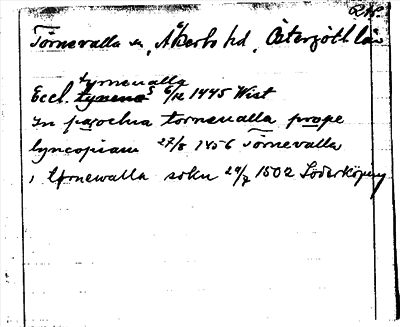 Törnevalla sn, Åkerbo hd, Östergötl län
tyrneualla
Eccl. tyrena 6/12 1445 Wist
In parochia torneualla prope
lyncopiam 27/8 1456 Törnevalla
i tørnewalla sokn 24/7 1502 Söderköping